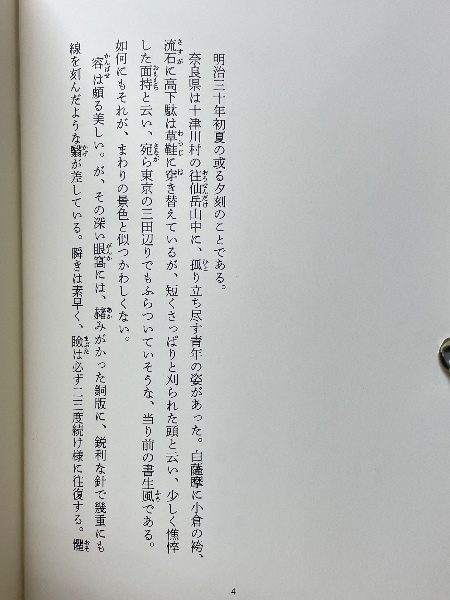 明治三十年初夏の或る夕刻のことである。
奈良県は十津川村の往仙岳山中に、孤り立ち尽す青年の姿があった。白薩摩に小倉の袴、
流石に高下駄は草鞋に穿き替えているが、短くさっぱりと刈られた頭と云い、少しく憔悴
した面持と云い、宛ら東京の三田辺りでもふらついていそうな、当り前の書生風である。
如何にもそれが、まわりの景色と似つかわしくない。
容は頗る美しい。が、その深い眼窩には、赭みがかった銅版に、鋭利な針で幾重にも
線を刻んだような翳が差している。瞬きは素早く、瞼は必ず二三度続け様に往復する。懼
4